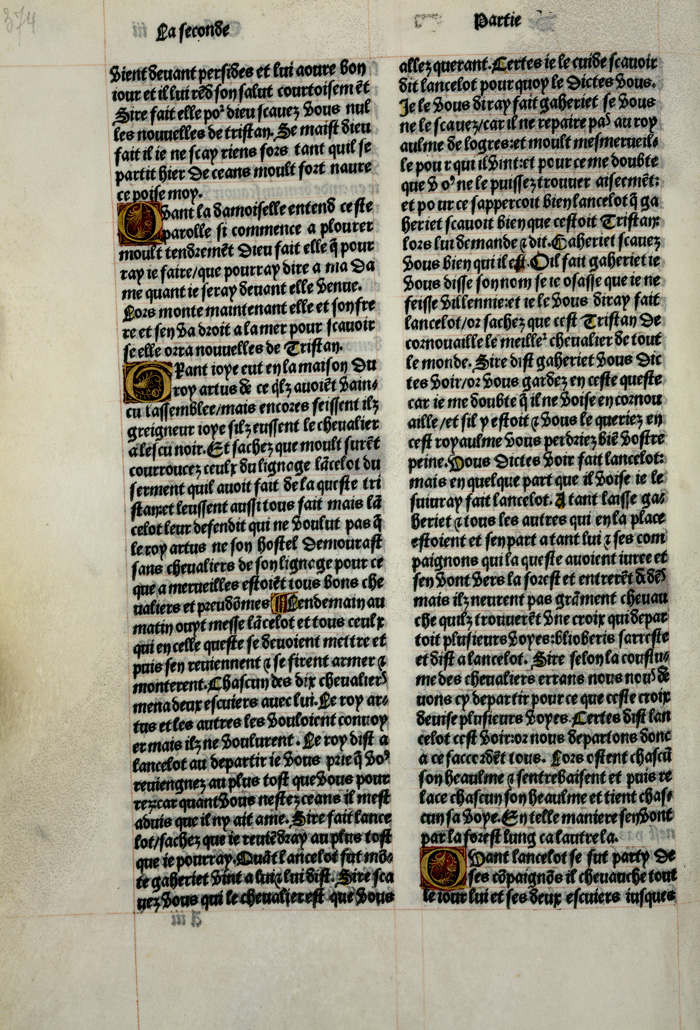 374
La seconde
Partie
vient devant persides et lui aoure bon
iour et il lui rēd son salut courtoisemēt
Sire fait elle poꝰ dieu scauez vous nul
les nouuelles de tristan. Se maist dieu
fait il ie ne scay riens fors tant quil se
partit hier de ceans moult fort naure
ce poise moy.
Quant la damoiselle entend ceste
parolle si commence a plourer
moult tendremēt Dieu fait elle q̄ pour
ray ie faire/que pourray dire a ma da
me quant ie seray deuant elle venue.
Lors monte maintenant elle et son fre
re et sen va droit a la mer pour scauoir
se elle orra nouuelles de Tristan.
Grant ioye eut en la maison du
roy artus de ce q̄lz auoiēt vain-
cu lassemblee/mais encores feissent ilz
greigneur ioye silz eussent le cheualier
a lescu noir. Et sachez que moult furēt
courroucez ceulx du lignage lācelot du
serment quil auoit fait de la queste tri
stan:et leussent aussi tous fait mais lā
celot leur defendit qui ne voulut pas q̄
le roy artus ne son hostel demourast
sans cheualiers de son lignage pour ce
que a merueilles estoiēt tous bons che
ualiers et preudōmes Lendemain au
matin ouyt messe lācelot et tous ceulx
qui en celle queste se deuoient mettre et
puis sen reuiennent ⁊ se firent armer ⁊
monterent. Chascun des dix cheualierꝰ
mena deux escuiers auec lui. Le roy ar-
tus et les autres les vouloient conuoy
er mais ilz ne voulurent. Le roy dist a
lancelot au departir ie vous prie q̄ voꝰ
reuiengnez au plus tost que vous pour
rez:car quant vous nestez ceans il mest
aduis que il ny ait ame. Sire fait lance
lot/sachez que ie reuiēdray au plus tost
que ie pourray. Quāt lancelot fut mō-
te gaheriet vint a lui ⁊ lui dist. Sire sca
uez vous qui le cheualier est que vous
allez querant. Certes ie le cuide scauoir
dit lancelot pour quoy le dictes vous.
Je le vous diray fait gaheriet se vous
ne le scauez/car il ne repaire paꝰ au roy
aulme de logres:et moult mesmerueil-
le pour qui il vint:et pour ce me doubte
que voꝰ ne le puissez trouuer aisemēt:
et pour ce sappercoit bien lancelot q̄ ga
heriet scauoit bien que cestoit Tristan:
lors lui demande ⁊ dit. Gaheriet scauez
vous bien qui il est. Oil fait gaheriet ie
vous disse son nom se ie osasse que ie ne
feisse villennie:et ie le vous diray fait
lancelot/or sachez que cest Tristan de
cornouaille le meilleꝰ cheualier de tout
le monde. Sire dist gaheriet vous dic
tes voir/or vous gardez en ceste queste
car ie me doubte q̄ il ne voise en cornou
aille/et sil y estoit ⁊ vous le queriez en
cest royaulme vous perdriez biē vostre
peine. Vous dictes voir fait lancelot:
mais en quelque part que il voise ie le
suiuray fait lancelot. A tant laisse ga-
heriet ⁊ tous les autres qui en la place
estoient et sen part a tant lui ⁊ ses com
paignons qui la queste auoient iuree et
sen vont vers la forest et entrerēt dedēꝰ
mais ilz neurent pas grāment cheuau
che quilz trouuerēt vne croix qui depar
toit plusieurs voyes:blioberis sarreste
et dist a lancelot. Sire selon la coustu-
me des cheualiers errans nous nouꝰ de
uons cy departir pour ce que ceste croix
deuise plusieurs voyes. Certes dist lan
celot cest voir:or nous departons donc
a ce saccordēt tous. Lors ostent chascū
son heaulme ⁊ sentrebaisent et puis re
lace chascun son heaulme et tient chas-
cun sa voye. En telle maniere sen vont
par la forest lung ca lautre la.
Quant lancelot se fut party de
ses cōpaignōs il cheuauche tout
le iour lui et ses deux escuiers iusques